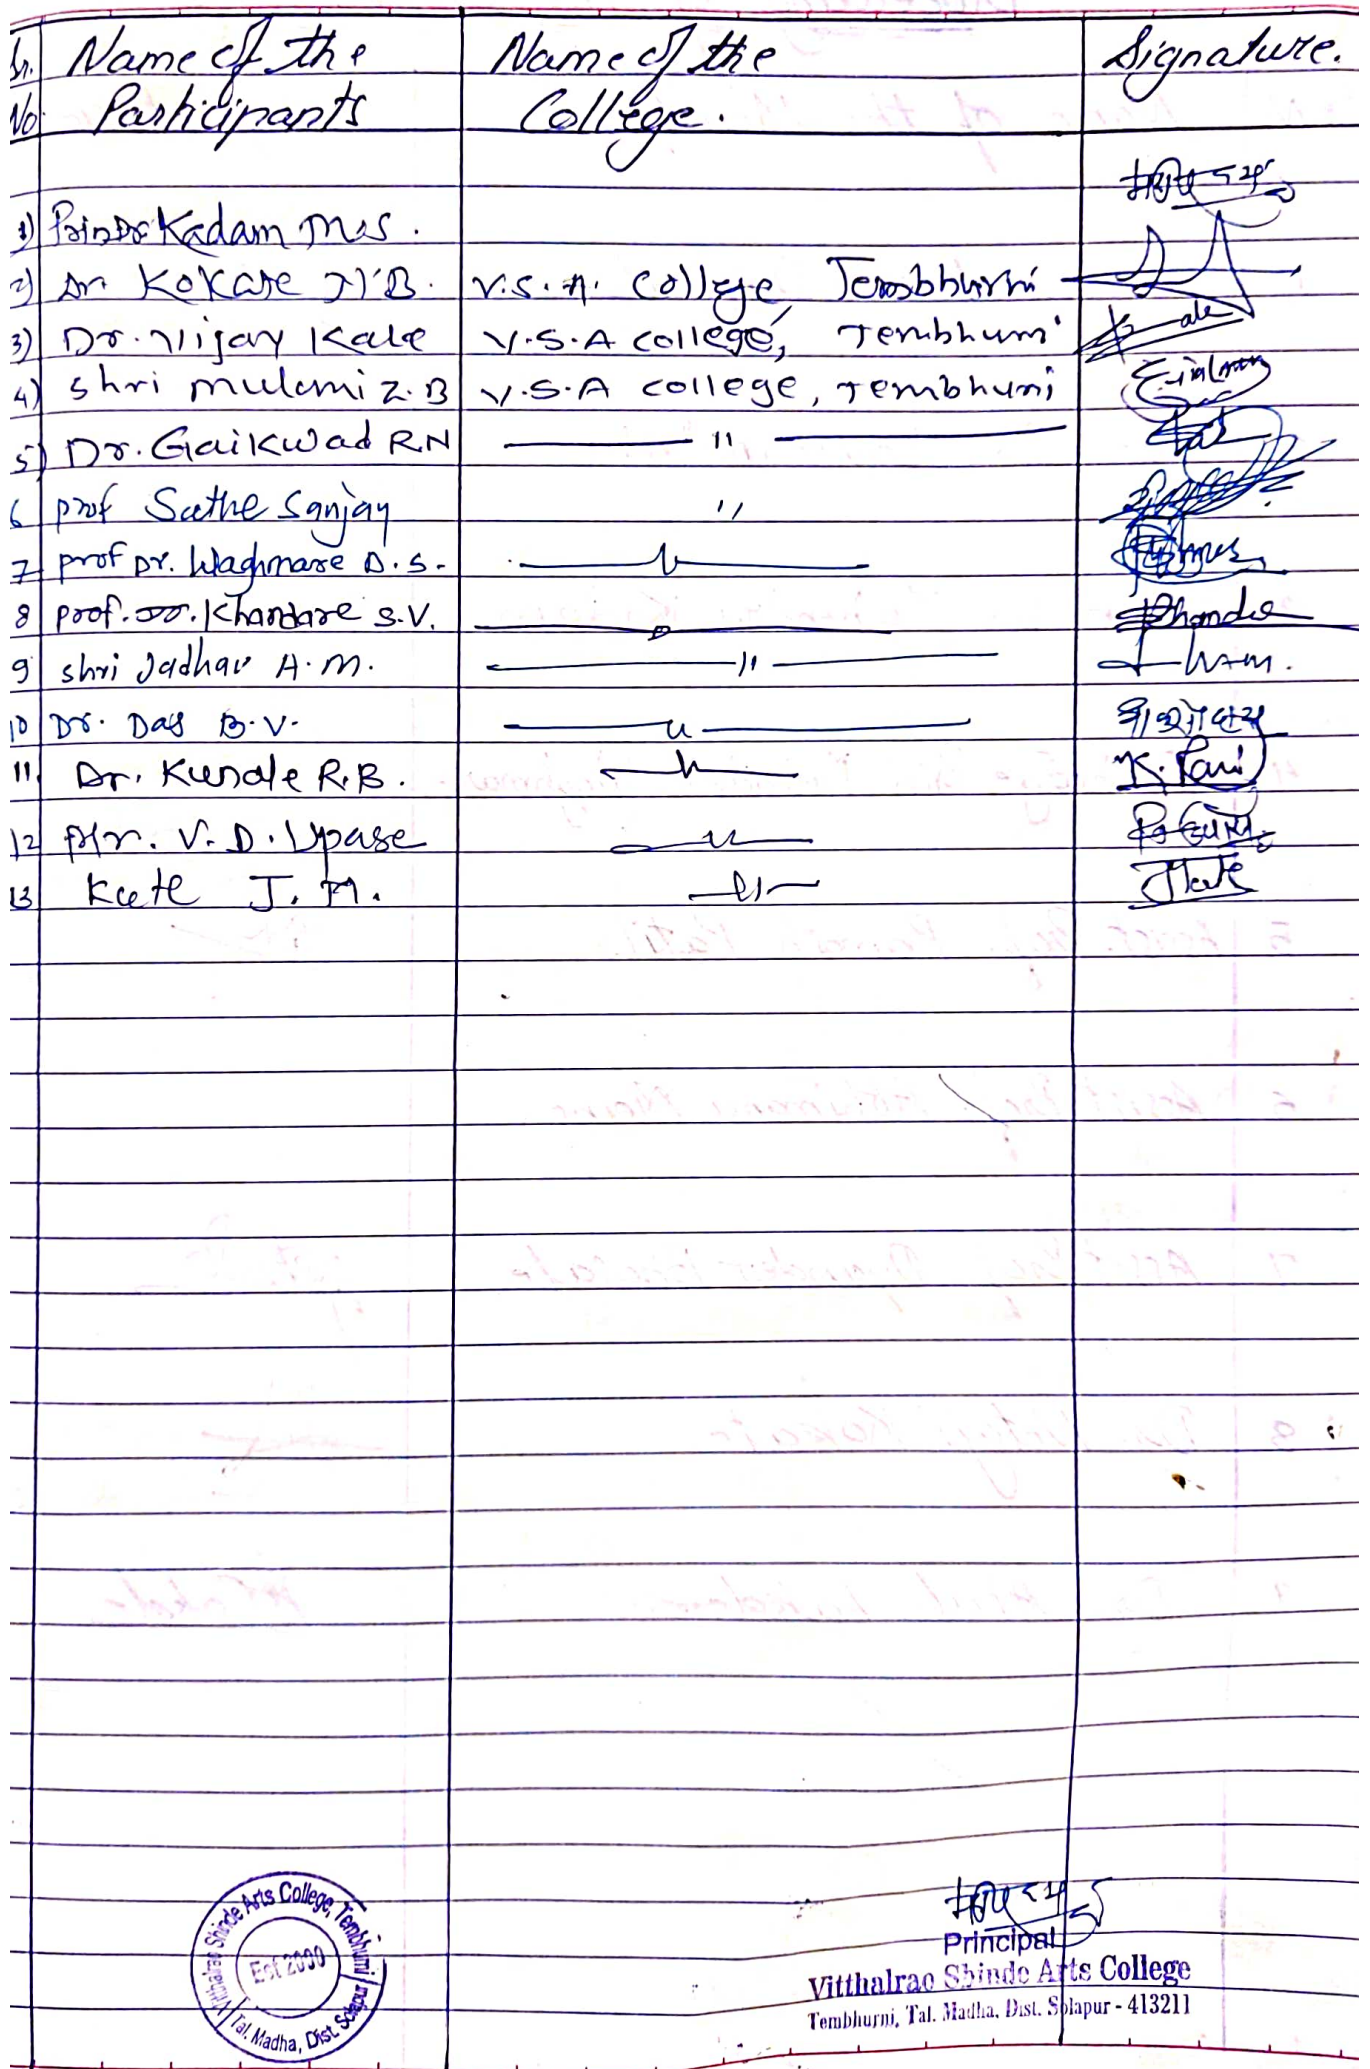 Sr. Name of the Name of the Signature.
No. Participants College.
1) Prin Dr Kadam M.S.
2) Dr. Kokare N.B. V.S.A. College, Tembhurni
3) Dr. Vijay Kale V.S.A college, Tembhurni
4) Shri Mulani Z.B V.S.A college, Tembhurni
5) Dr. Gaikwad R.N — 11 —
6 Prof Sathe Sanjay 11
7 prof Dr. Waghmare D.S. — 11 —
8 prof. Dr. Khandare S.V. — 11 —
9 shri Jadhav A.M. — 11 —
10 Dr. Das B.V. — 11 —
11. Dr. Kundle R.B. — 11 —
12 Mr. V.D. Upase — 11 —
13 Kute J.M. — 11 —
Vitthalrao Shinde Arts College, Tembhurni
Tal. Madha, Dist Solapur
Est 2000
Principal
Vitthalrao Shinde Arts College
Tembhurni, Tal. Madha. Dist. Solapur - 413211